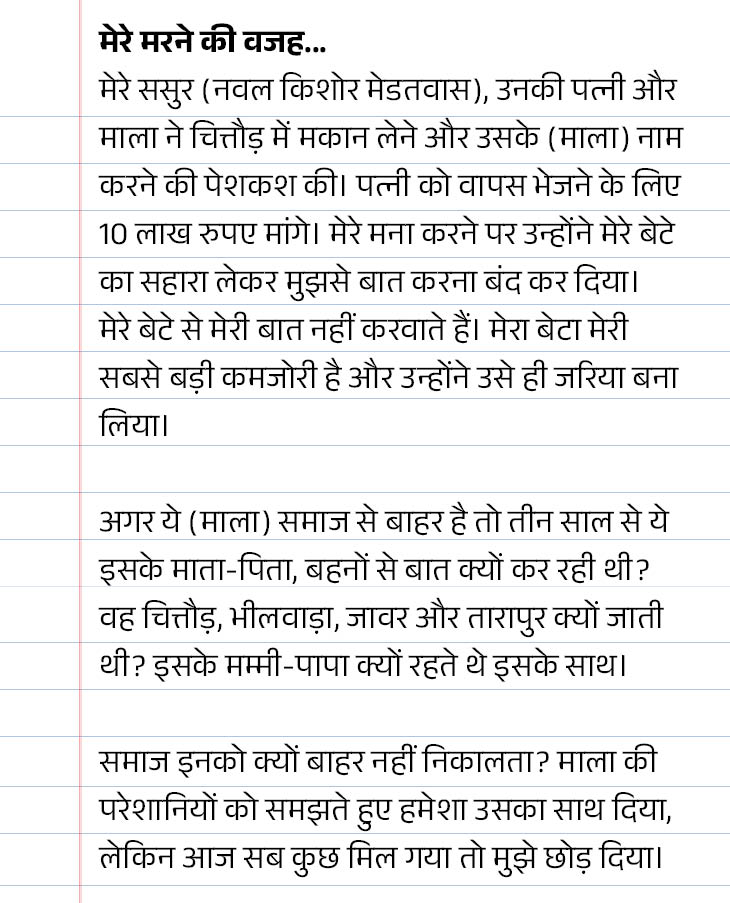 मेरे मरने की वजह...
मेरे ससुर (नवल किशोर मेडतवास), उनकी पत्नी और
माला ने चित्तौड़ में मकान लेने और उसके (माला) नाम
करने की पेशकश की। पत्नी को वापस भेजने के लिए
10 लाख रुपए मांगे। मेरे मना करने पर उन्होंने मेरे बेटे
का सहारा लेकर मुझसे बात करना बंद कर दिया।
मेरे बेटे से मेरी बात नहीं करवाते हैं। मेरा बेटा मेरी
सबसे बड़ी कमजोरी है और उन्होंने उसे ही जरिया बना
लिया।
अगर ये (माला) समाज से बाहर है तो तीन साल से ये
इसके माता-पिता, बहनों से बात क्यों कर रही थी?
वह चित्तौड़, भीलवाड़ा, जावर और तारापुर क्यों जाती
थी? इसके मम्मी-पापा क्यों रहते थे इसके साथ।
समाज इनको क्यों बाहर नहीं निकालता? माला की
परेशानियों को समझते हुए हमेशा उसका साथ दिया,
लेकिन आज सब कुछ मिल गया तो मुझे छोड़ दिया।